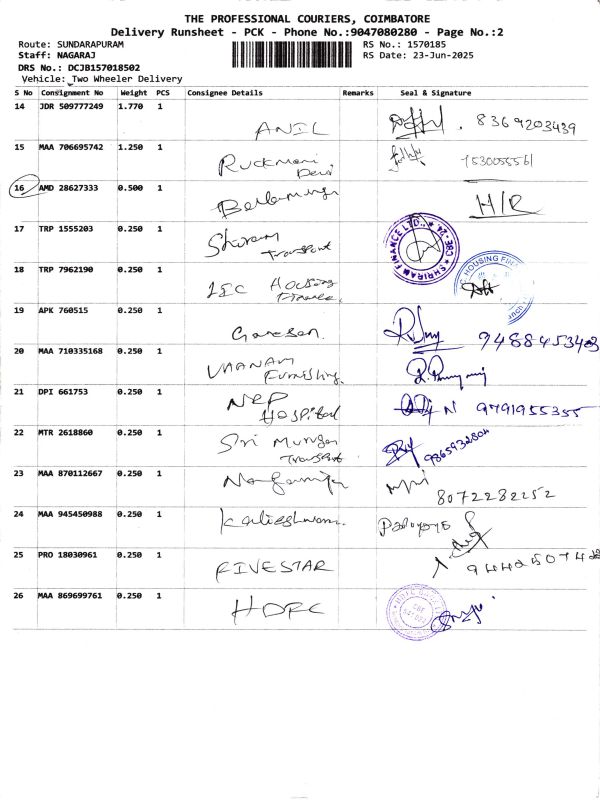 THE PROFESSIONAL COURIERS, COIMBATORE
Delivery Runsheet - PCK - Phone No.:9047080280 - Page No.:2
Route: SUNDARAPURAM RS No.: 1570185
Staff: NAGARAJ RS Date: 23-Jun-2025
DRS No.: DCJB157018502
Vehicle: Two Wheeler Delivery
S No Consignment No Weight PCS Consignee Details Remarks Seal & Signature
14 JDR 509777249 1.770 1 ANIL 8369203439
15 MAA 706695742 1.250 1 Ruckmani Devi 1530055561
16 AMD 28627333 0.500 1 H/R
17 TRP 1555203 0.250 1 Shriram Transport SHRIRAM FINANCE LTD. CBE-24
18 TRP 7962190 0.250 1 LIC Housing Finance HOUSING FIN
19 APK 760515 0.250 1 Ganesan 9488453403
20 MAA 710335168 0.250 1 VAANAM Furnishing
21 DPI 661753 0.250 1 Hospital 9791955355
22 MTR 2618860 0.250 1 Sri Murugan Transport 9865932804
23 MAA 870112667 0.250 1 8072282252
24 MAA 945450988 0.250 1 Kalieshwari
25 PRO 18030961 0.250 1 FIVESTAR
26 MAA 869699761 0.250 1 HDFC